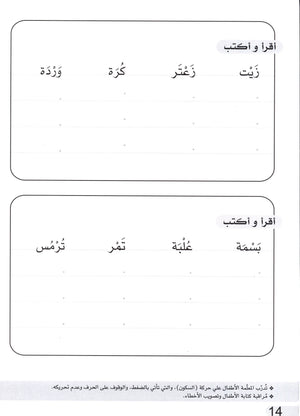 أقرأ و أكتب
زَيْت زَعْتَر كُرَة وَرْدَة
أقرأ و أكتب
بَسْمَة عُلْبَة تَمْر تُرْمُس
❖ تُدرِّب المعلِّمة الأطفال على حركة (السكون)، والتي تأتي بالضغط، والوقوف على الحرف وعدم تحريكه.
❖ مُراقبة كتابة الأطفال وتصويب الأخطاء.
14